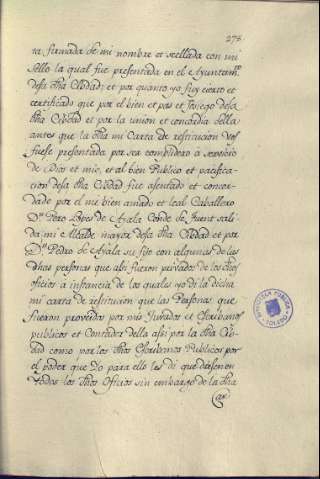 275
ta firmada de mi nombre et seellada con mi
sello la qual fue presentada en el Ayuntamto
desa dha Cibdad; et por quanto yo fuy cierto et
certificado que por el bien et pas et sosiego desa
dha Cibdad et por la union et concordia della
antes que la dha mi Carta de restitucion vos
fuese presentada por ser complidero a servicio
de Dios et mio, et al bien Publico et pacifica-
cion desa dha Cibdad fue asentado et concor-
dado por el mi bien amado et leal Caballero
Dn Pero Lopes de Ayala Conde de Fuent sali-
da mi Alcalde mayor desa dha Cibdad et por
Dn Pedro de Ayala su fijo con algunas de las
dhas personas que ahi fueron privados de los dhos
oficios a instancia de los quales yo di la dicha
mi carta de restitucion que las Personas que
fueron proveidos por mis Jurados et Escribanos
publicos et Contador della asi por la dha Cib-
dad como por los dhos Escribanos Publicos por
el poder que Yo para ello les di que dexasen
todos los dhos Oficios sin embargo de la dha
Car
BIBLIOTECA PUBLICA
TOLEDO